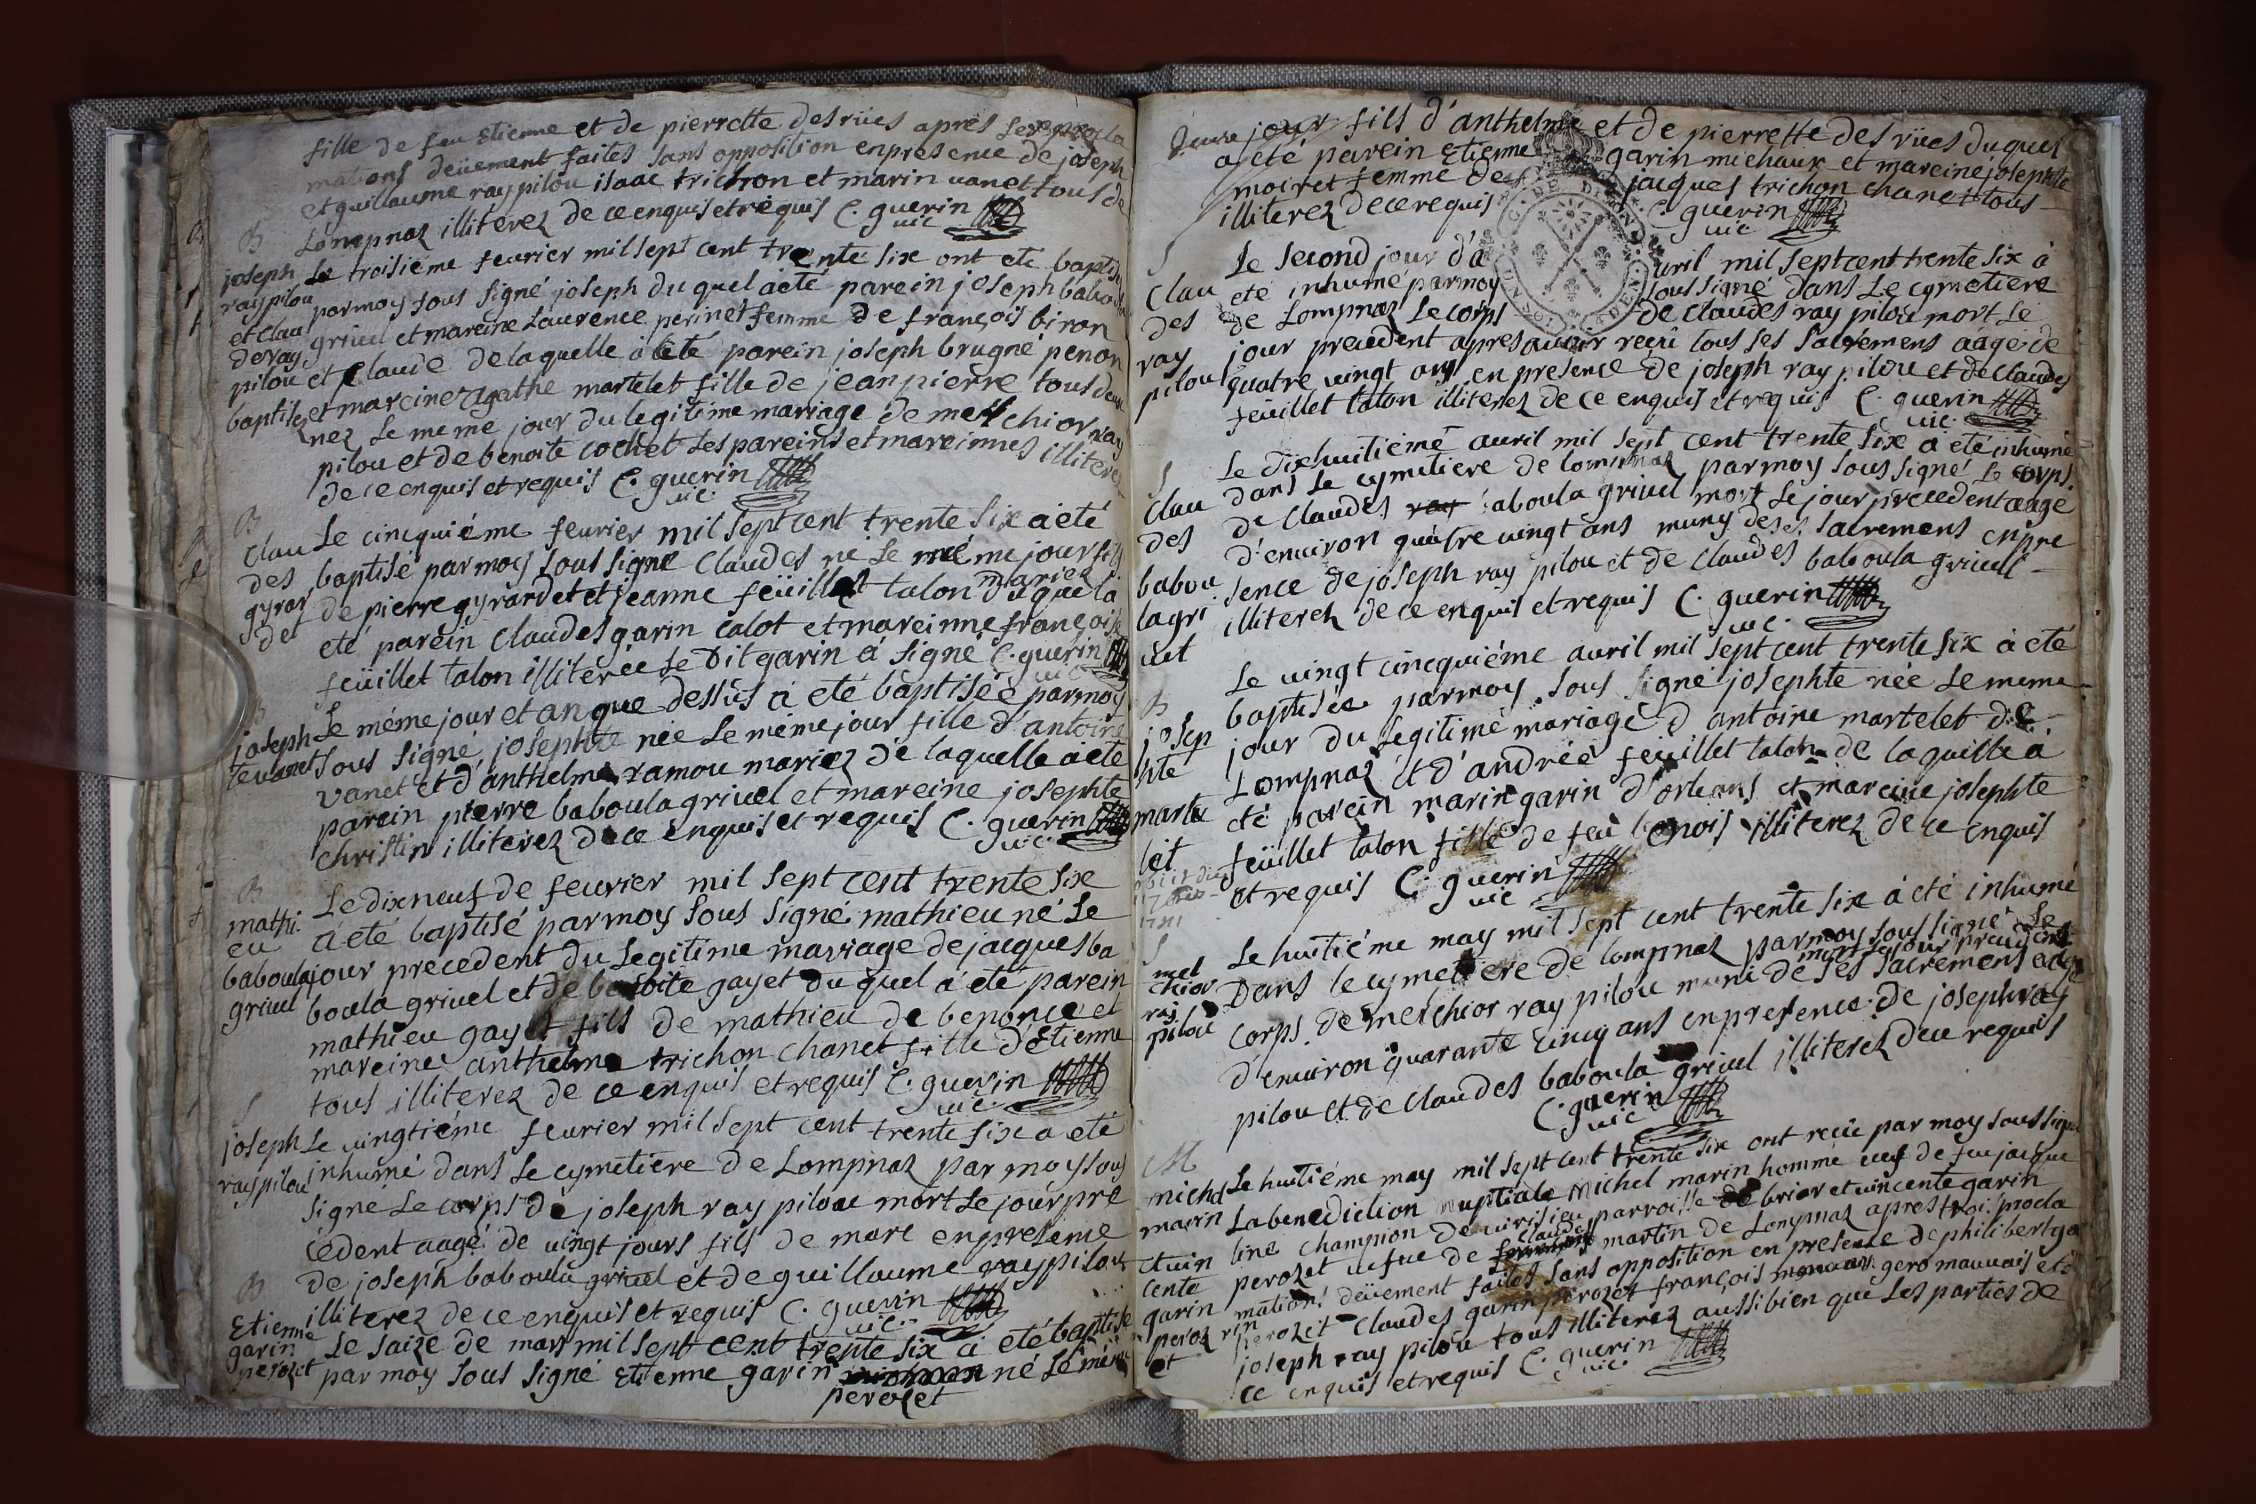 fille de feu Etienne et de pierrette des rües aprés les procla
mations deüement faites sans opposition en presence de joseph
et guillaume ray pilou isaac trichon et marin vanet tous de
Lompnaz illiterez de ce enquis et requis C. guerin
vic
B
joseph
ray pilou
et clau
de ray
pilou
baptisez
Le troisiéme feurier mil sept cent trente six ont eté baptisez
par moy sous signé joseph du quel a eté parein joseph baboula
griuel et mareine Laurence perinet femme de françois biron
et Claude de laquelle à eté parein joseph brugné penon
et mareine agathe martelet fille de jean pierre tous deux
nez le meme jour du legitime mariage de melchior ray
pilou et de benoite cochet Les pareins et mareinnes illiterez
de ce enquis et requis C. guerin
vic.
B
Clau
des
gyrar
det
Le cincquiéme feurier mil sept cent trente six a été
baptisé par moy sous signé Claudes né le méme jour fils
de pierre gyrardet et jeanne feüillet talon mariez du quel a
eté parein Claudes garin calot et mareinne françoise
feüillet talon illiterée Le dit garin a signé C. guerin
vic
B
joseph
te vanet
Le méme jour et an que dessus à eté baptisée par moy
sous signé josephte née Le méme jour fille d'antoine
vanet et d'anthelme ramou mariez de laquelle a eté
parein pierre baboula griuel et mareine josephte
Christin illiterez de ce enquis et requis C. guerin
vic.
B
mathi
eu
baboula
griuel
Le dix neuf de feurier mil sept cent trente six
à eté baptisé par moy sous signé mathieu né Le
jour precedent du Legitime mariage de jacques ba
boula griuel et de benoite gayet du quel a été parein
mathieu gayet fils de mathieu de benonce et
mareine anthelme trichon chanet fille d'Etienne
tous illiterez de ce enquis et requis C. guerin
vic.
S
joseph
ray pilou
Le vingtiéme feurier mil sept cent trente six a eté
inhumé dans Le cymetiere de Lompnaz par moy sous
signé Le corps de joseph ray pilou mort Le jour pre
cedent aagé de vingt jours fils de marc en presence
de joseph baboula griuel et de guillaume ray pilou
illiterez de ce enquis et requis C. guerin
vic.
B
Etienne
garin
perozet
Le saize de mars mil sept cent trente six a été baptisé
par moy sous signé Etienne garin né Le méme
perozet
jour fils d'anthelme et de pierrette des rües duquel
a été parein Etienne garin michaux et mareine josephte
moiret femme de jacques trichon chanet tous
illiterez de ce requis C. guerin
vic
S
Clau
des
ray
pilou
Le second jour d'auril mil sept cent trente six à
eté inhumé par moy sous signé dans Le cymetiere
de Lompnaz Le corps de Claudes ray pilou mort Le
jour precedent apres auoir reçû tous ses sacrémens aagé de
quatre vingt ans en presence de joseph ray pilou et de Claudes
feüillet talon illiterez de ce enquis et requis C. guerin
vic.
S
Clau
des
babou
lagri
uel
Le dixhuitiéme auril mil sept cent trente six a été inhumé
dans Le cymetiere de lompnaz par moy sous signé Le corps
de Claudes ray baboula griuel mort Le jour precedent aagé
d'enuiron quatre vingt ans muny de ses sacremens en pre
sence de joseph ray pilou et de Claudes baboula griuel
illiterez de ce enquis et requis C. guerin
vic.
B
josep
hte
marte
let
Le vingt cincquiéme auril mil sept cent trente six à eté
baptisée par moy sous signé josephte née Le meme
jour du Legitime mariage d'antoine martelet de
Lompnaz et d'andrée feüillet talon de laquelle á
été parein marin garin d'orleans et mareine josephte
feüillet talon fille de feu benois illiterez de ce enquis
et requis C. guerin
vic
S
mel
chior
ray
pilou
Le huitiéme may mil sept cent trente six à été inhumé
Dans le cymetiere de lompnaz par moy sous signé Le
corps de melchior ray pilou mort le jour precedent muni de ses sacremens aagé
d'enuiron quarante cinq ans en presence de joseph ray
pilou et de Claudes baboula griuel illiterez de ce requis
C. guerin
vic
M
michel
marin
et vin
cente
garin
peroz
et
Le huitiéme may mil sept cent trente six ont reçûe par moy sous signé
La benediction nuptiale michel marin homme veuf de feu jacque
line champion de parroisse de brior et vincente garin
perozet vefue de claudes martin de Lompnaz apres trois procla
mations deüement faites sans opposition en presence de philibert ga
rin perozet Claudes garin perozet françois gero mauuais et
joseph ray pilou tous illiterez aussi bien que Les parties de
ce enquis et requis C. guerin
vic.